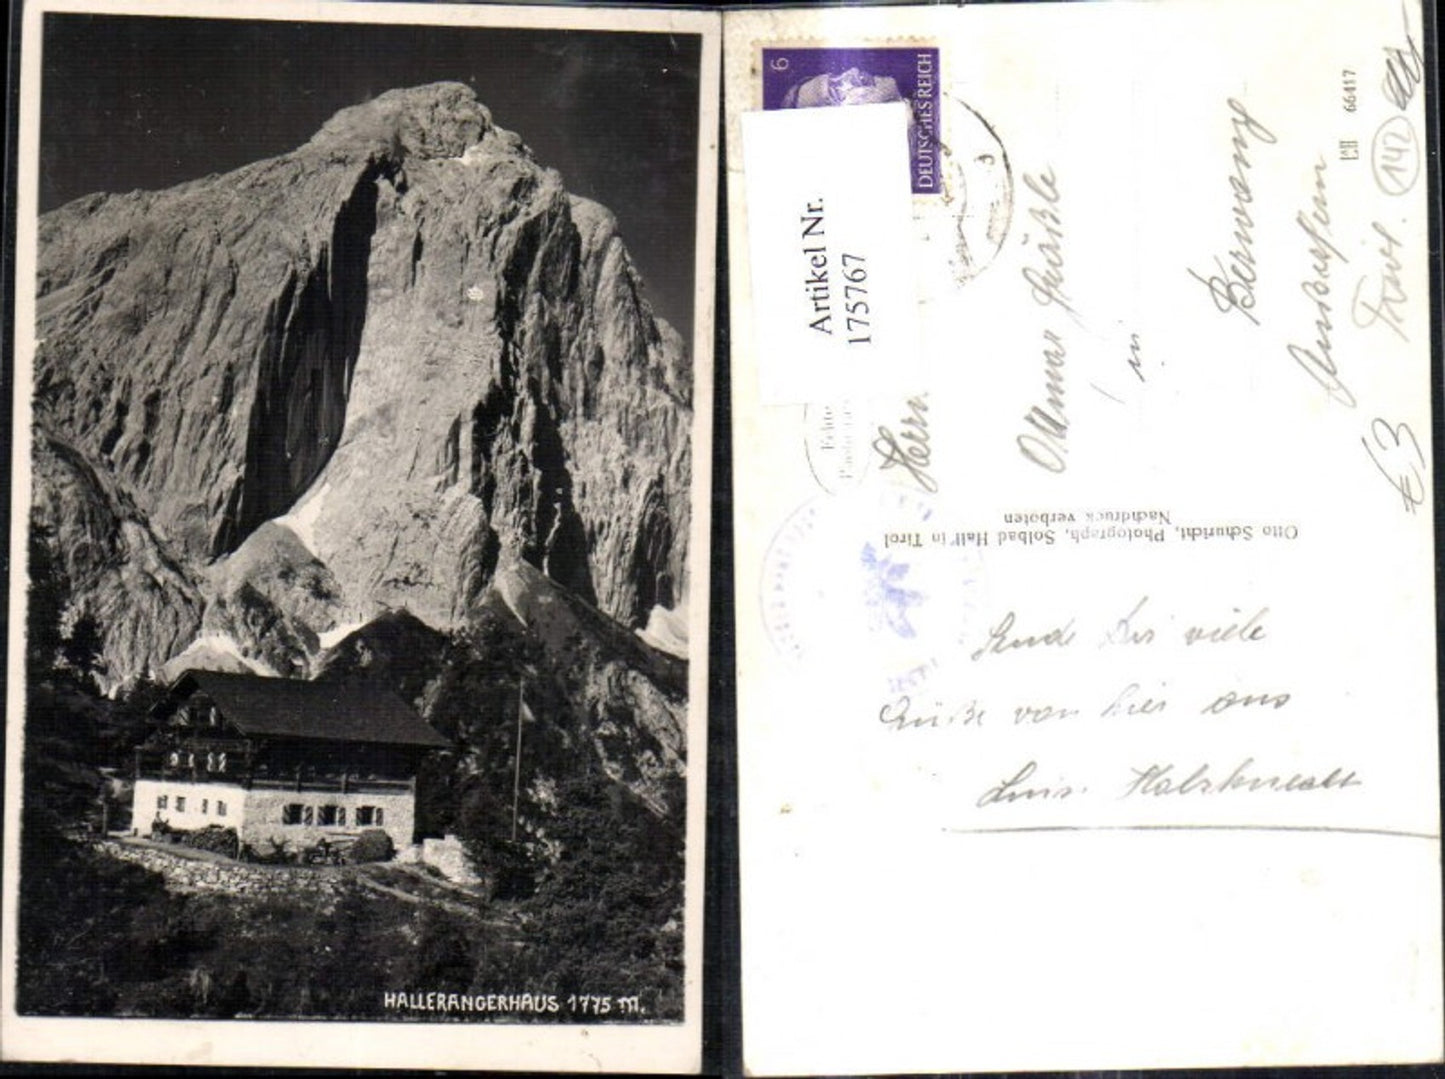 HALLERANGERHAUS 1775 m.
6
DEUTSCHES REICH
Artikel Nr.
175767
Herrn
Otmar
in
Berwang
Ausserfern
Tirol.
142
66417
€3
Otto Schuricht, Photograph, Solbad Hall in Tirol
Nachdruck verboten
Sende Dir viele
Grüße von hier aus